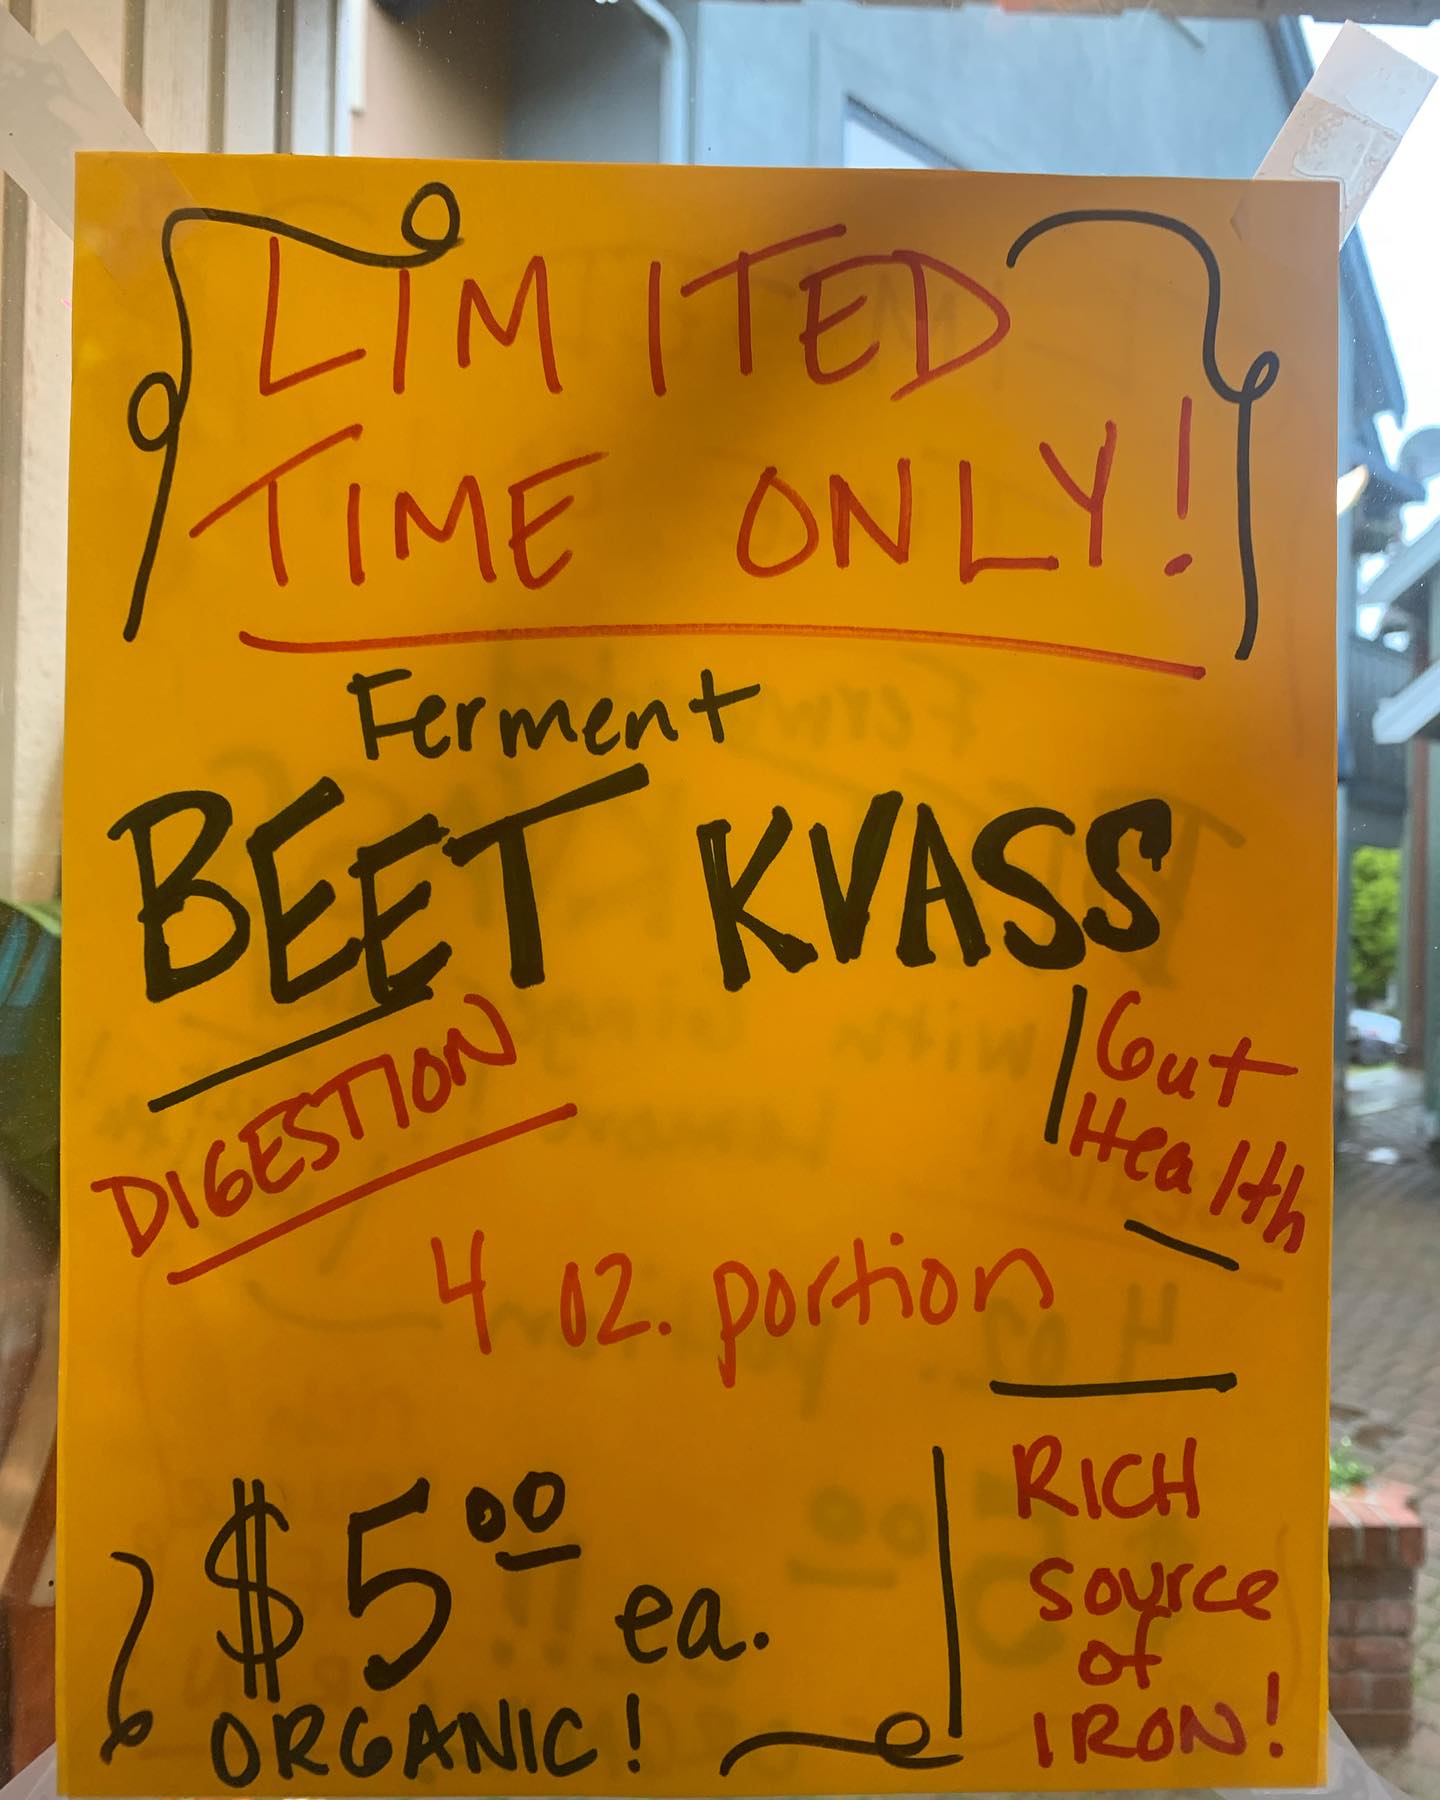 LIMITED
TIME ONLY!
Ferment
BEET KVASS
DIGESTION
Gut
Health
4 oz. portion
$5.00 ea.
ORGANIC!
RICH
source
of
IRON!